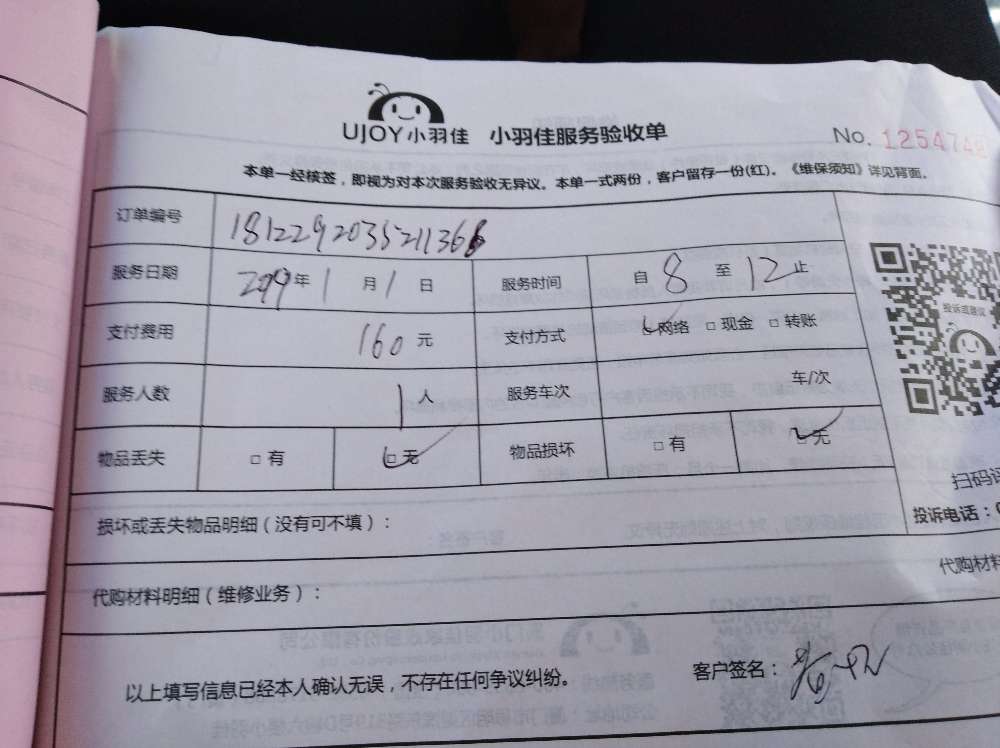 UJOY小羽佳 小羽佳服务验收单
No. 1254748
本单一经核签，即视为对本次服务验收无异议。本单一式两份，客户留存一份(红)。《维保须知》详见背面。
订单编号 181229203521136
服务日期 2019年1月1日 服务时间 自8至12止
投诉或建议
支付费用 160元 支付方式 网络 □现金 □转账
服务人数 1人 服务车次 车/次
物品丢失 □有 □无 物品损坏 □有 无
扫码
损坏或丢失物品明细（没有可不填）：
投诉电话：
代购材料明细（维修业务）：
代购材料
以上填写信息已经本人确认无误，不存在任何争议纠纷。 客户签名：